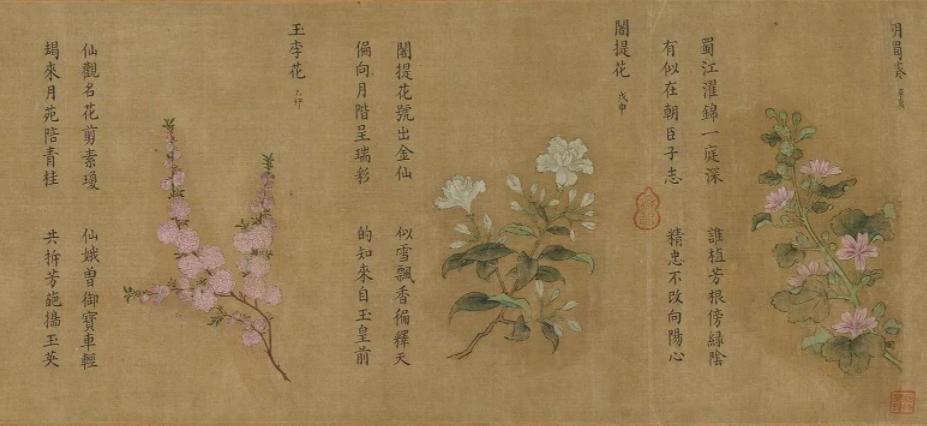 蜀葵 辛亥
蜀江濯錦一庭深 誰植芳根傍緑陰
有似在朝臣子志 精忠不改向陽心
闍提花 戊申
闍提花號出金仙 似雪飄香徧釋天
偏向月階呈瑞彩 的知來自玉皇前
玉李花 乙卯
仙觀名花剪素瓊 仙娥曽御寶車輕
朅來月苑陪青桂 共拆芳葩擣玉英